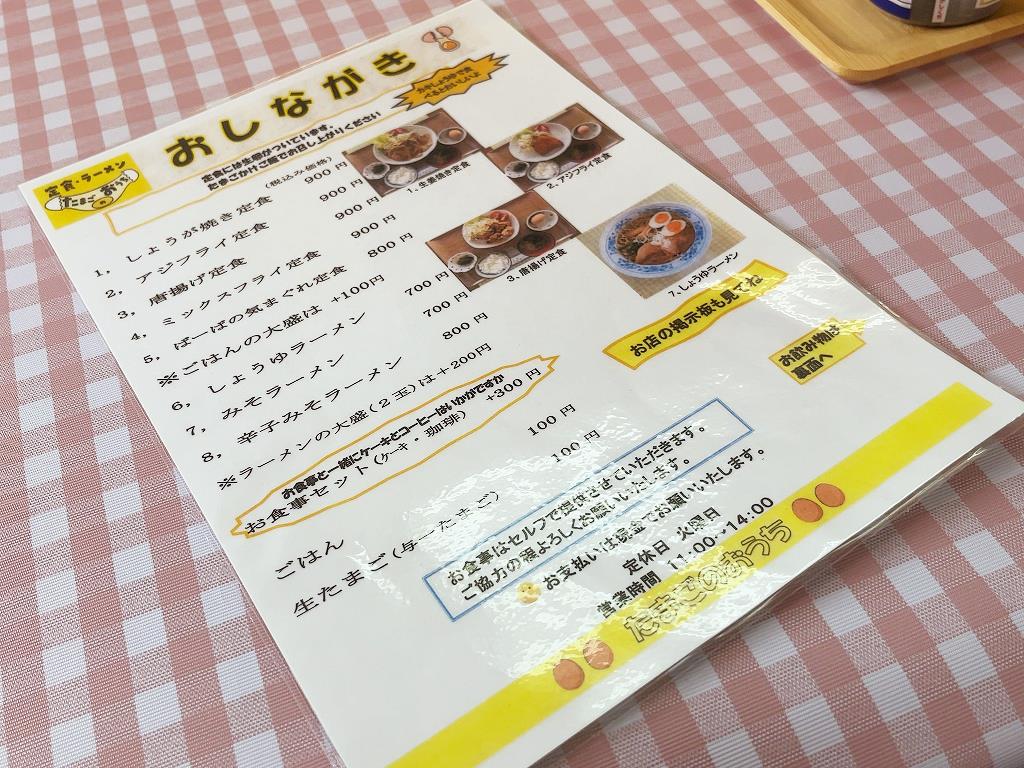 おしながき
カキしょうゆで食
べるとおいしいよ
定食・ラーメン
たまごのおうち
定食には生卵がついています。
たまごかけご飯でお召し上がりください
(税込み価格)
1, しょうが焼き定食 900 円
2, アジフライ定食 900 円
3, 唐揚げ定食 900 円
4, ミックスフライ定食 900 円
5, ばーばの気まぐれ定食 800 円
※ごはんの大盛は +100円
6, しょうゆラーメン 700 円
7, みそラーメン 700 円
8, 辛子みそラーメン 800 円
※ラーメンの大盛(2玉)は+200円
お食事と一緒にケーキとコーヒーはいかがですか
お食事セット(ケーキ・珈琲) +300 円
ごはん 100 円
生たまご(与一たまご) 100 円
1、生姜焼き定食
2、アジフライ定食
3、唐揚げ定食
7、しょうゆラーメン
お店の掲示板も見てね
お飲み物は
裏面へ
お食事はセルフで提供させていただきます。
ご協力の程よろしくお願いいたします。
お支払いは現金でお願いいたします。
定休日 火曜日
営業時間 11:00~14:00
たまごのおうち